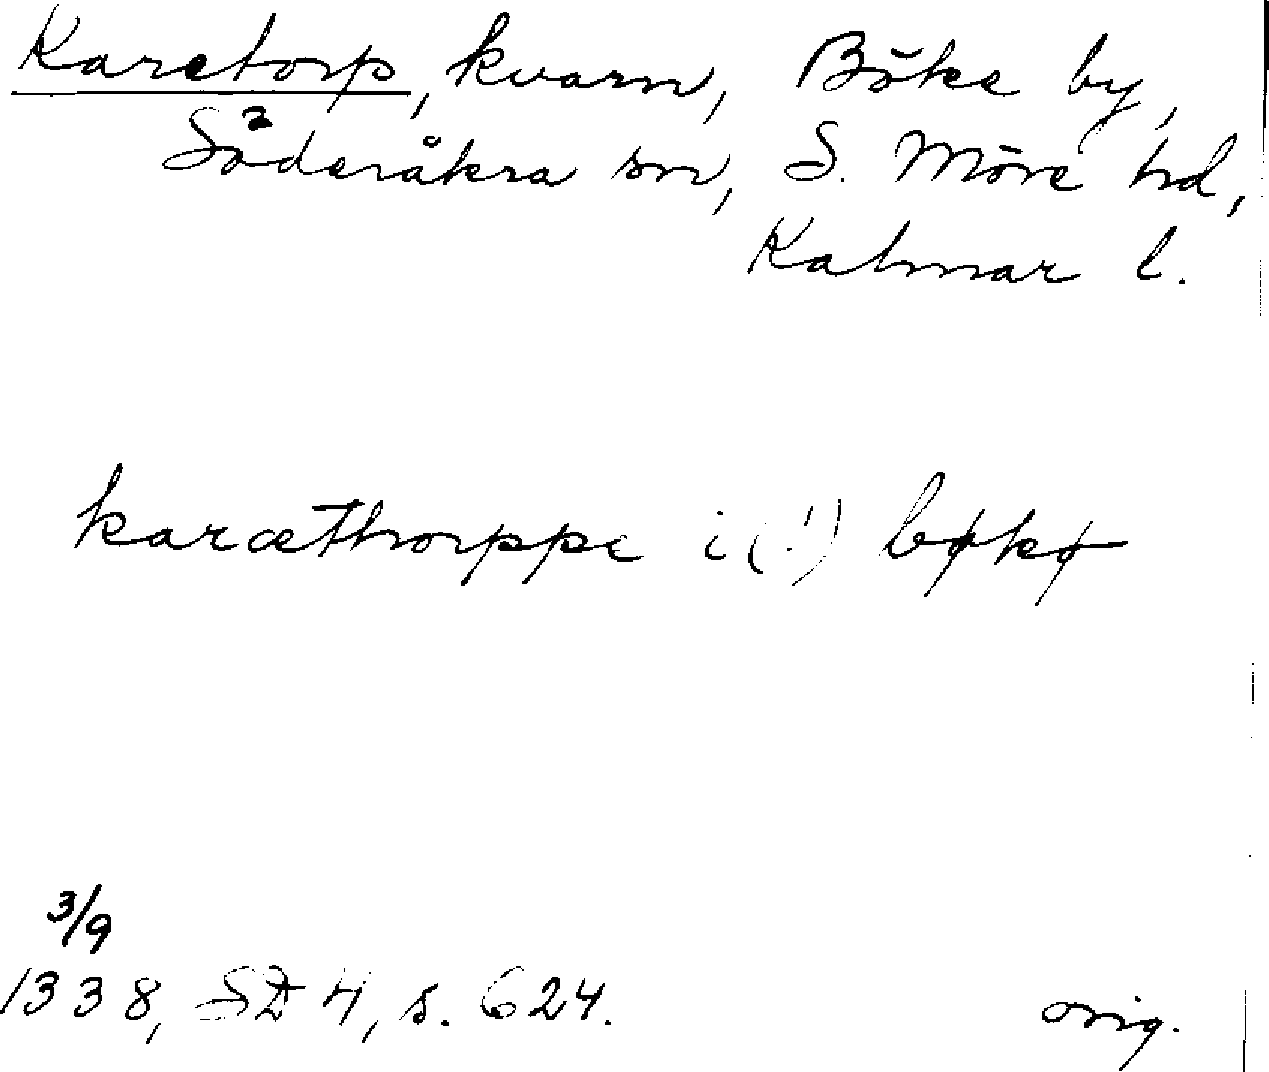 Karetorp, kvarn, Böke by,
Söderåkra sn, S. Möre hd,
Kalmar l.
karæthorppe i (!) bøkø
3/9
1338, SD 4, s. 624.
orig.